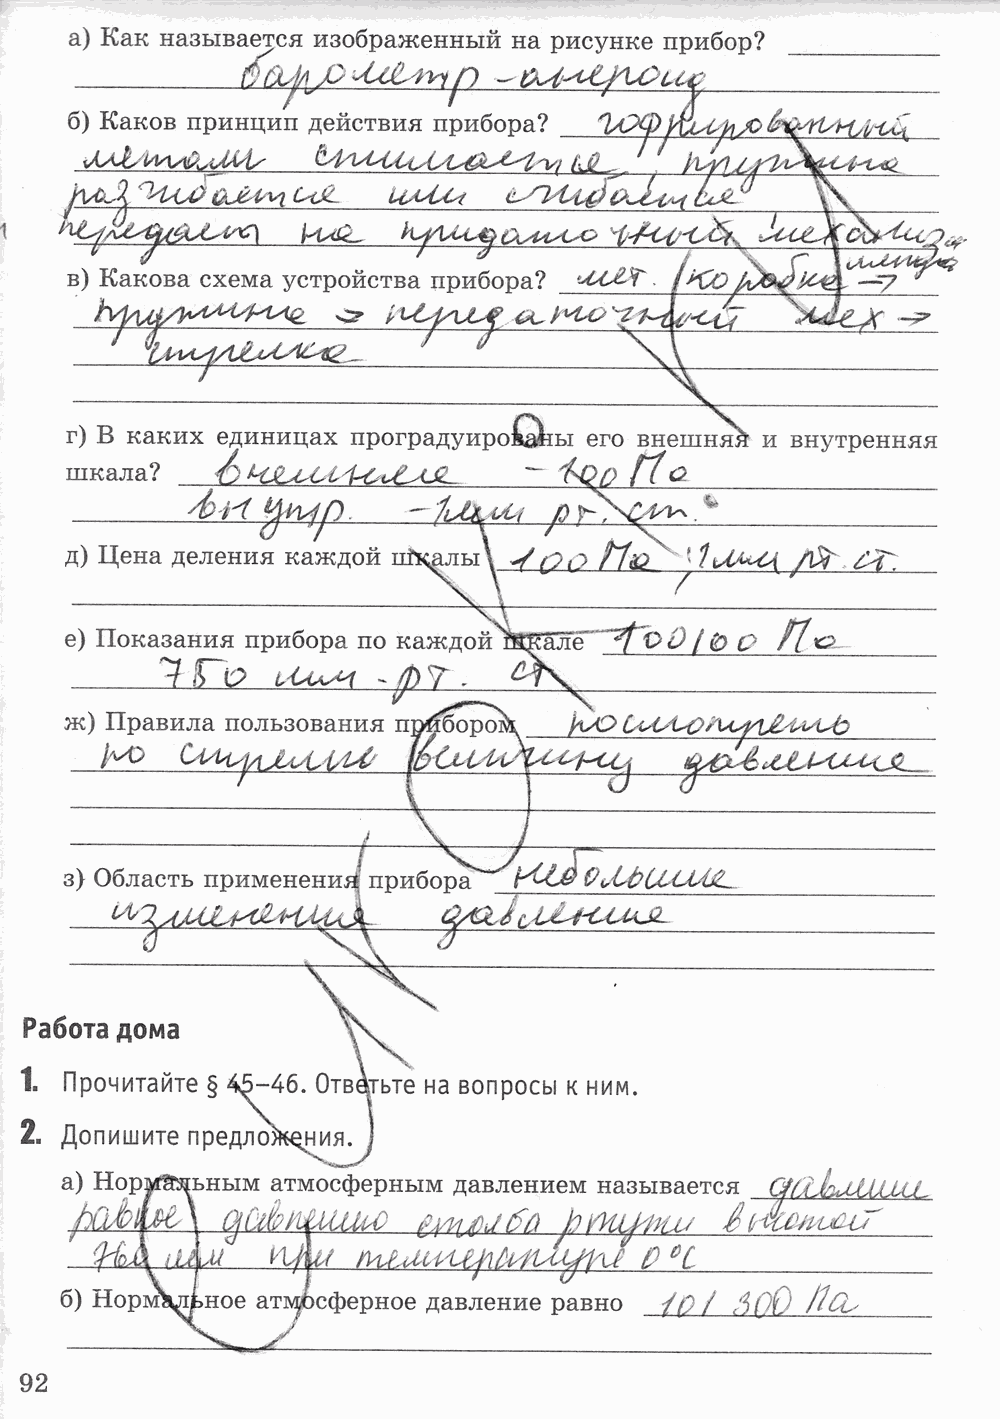 а) Как называется изображенный на рисунке прибор?
барометр - анероид
б) Каков принцип действия прибора? гофрированный
металл сжимается, пружина
разгибается или сгибается
на механиз
в) Какова схема устройства прибора? мет. коробка →
пружина → передаточный мех →
стрелка
г) В каких единицах проградуированы его внешняя и внутренняя
шкала? внешняя - 100 Па
внутр. - 1мм рт. ст.
д) Цена деления каждой шкалы 100 Па ; 1мм рт. ст.
е) Показания прибора по каждой шкале 100100 Па
750 мм. рт. ст
ж) Правила пользования прибором посмотреть
по стрелке величину давление
з) Область применения прибора небольшие
изменения давление
Работа дома
1. Прочитайте § 45–46. Ответьте на вопросы к ним.
2. Допишите предложения.
а) Нормальным атмосферным давлением называется давление
равное давлению столба ртути высотой
760 мм при температуре 0°С
б) Нормальное атмосферное давление равно 101 300 Па
92